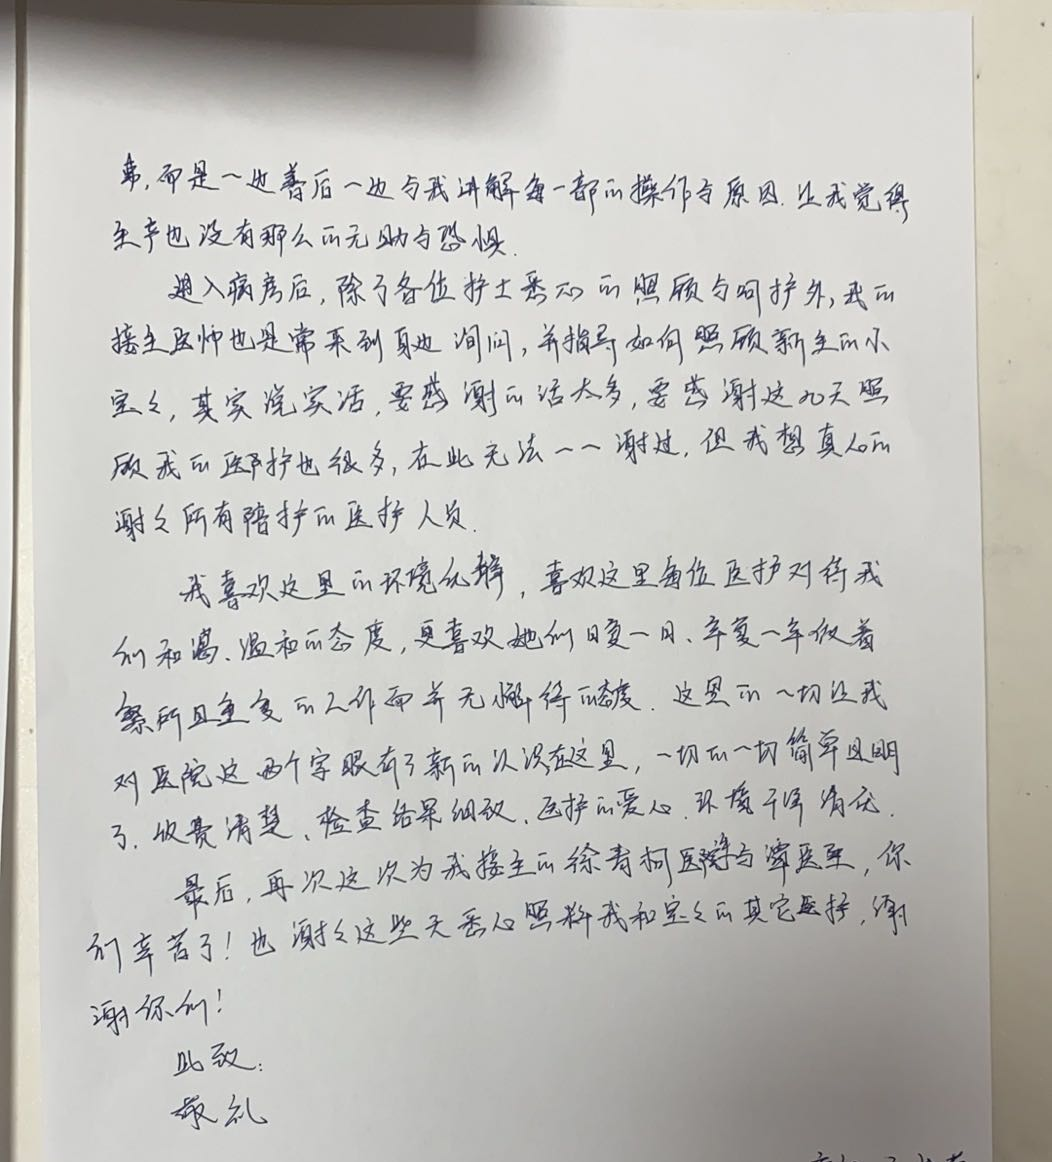 弗，而是一边善后一边与我讲解每一部的操作与原因.让我觉得
生产也没有那么的无助与恐惧.
进入病房后，除了各位护士悉心的照顾与呵护外，我的
接生医师也是常来到身边询问，并指导如何照顾新生的小
宝々，其实说实话，要感谢的话太多，要感谢这九天照
顾我的医护也很多，在此无法一一谢过，但我想真心的
谢々所有陪护的医护人员.
我喜欢这里的环境优雅，喜欢这里每位医护对待我
们和蔼、温和的态度，更喜欢她们日复一日、年复一年做着
繁所且重复的工作而并无懈待的态度.这里的一切让我
对医院这两个字眼有了新的认识在这里，一切的一切简单且明
了.收费清楚、检查结果细致、医护的爱心.环境干净清优.
最后，再次这次为我接生的徐寿柯医师与谭医生，你
们辛苦了！也谢々这些天悉心照料我和宝々的其它医护，谢
谢你们！
此致：
敬礼